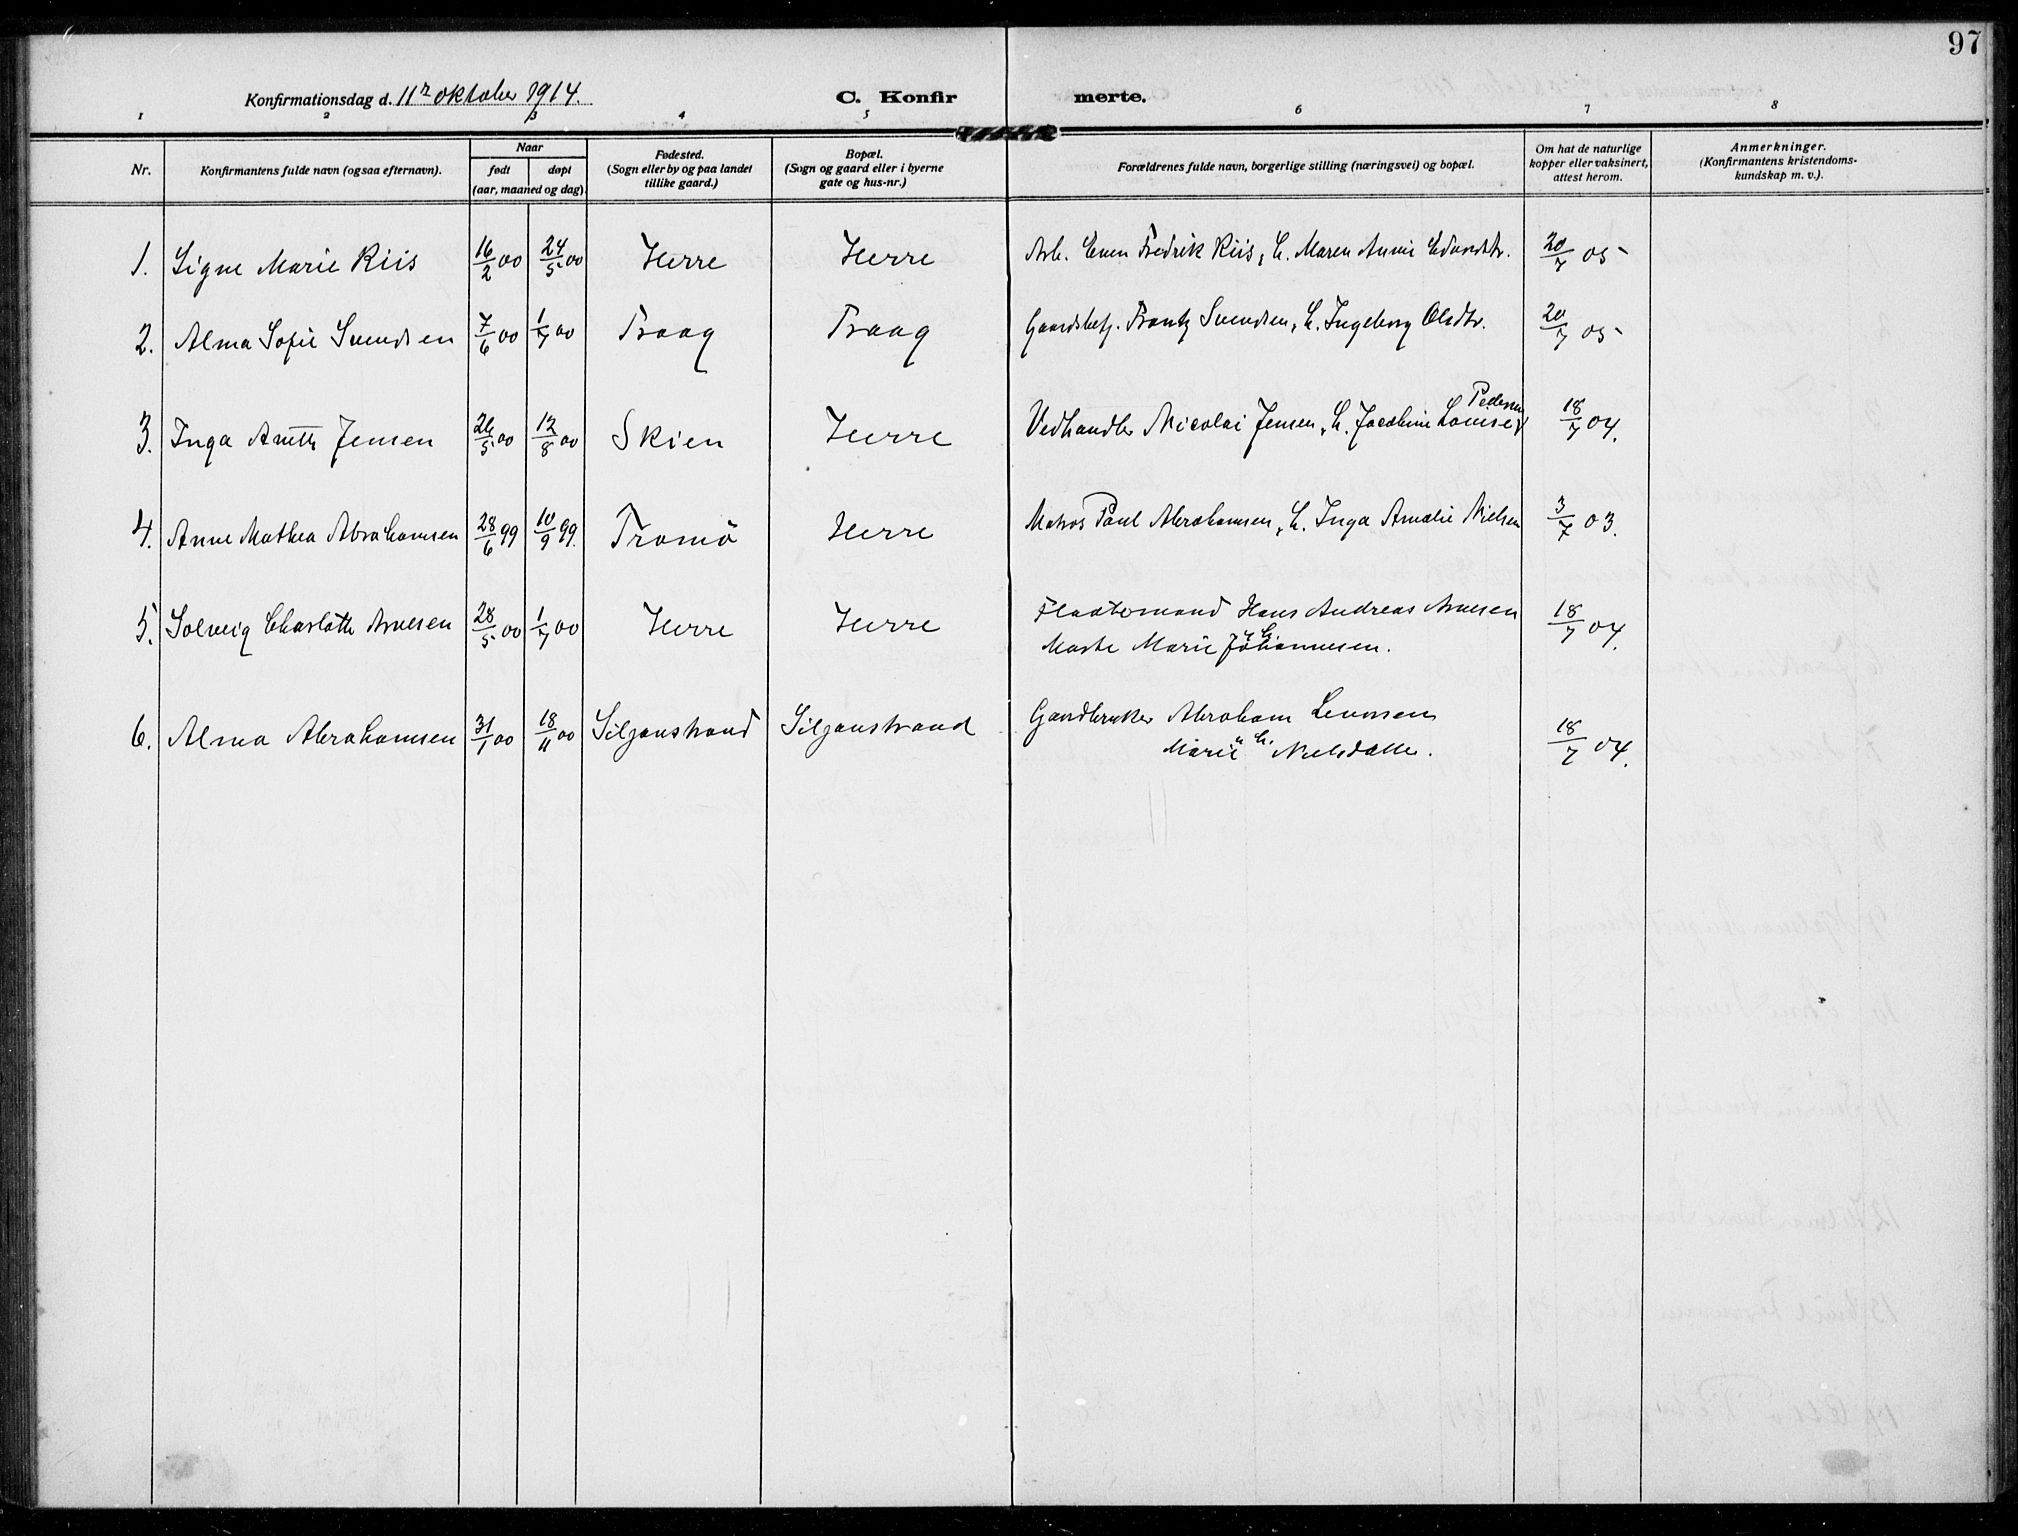 97
Konfirmationsdag d. 11r oktober 1914.
C. Konfir merte.
1 2 3 4 5 6 7 8
Nr.
Konfirmantens fulde navn (ogsaa efternavn).
Naar
født døpt
(aar, maaned og dag).
Fødested.
(Sogn eller by og paa landet
tillike gaard.)
Bopæl.
(Sogn og gaard eller i byerne
gate og hus-nr.)
Forældrenes fulde navn, borgerlige stilling (næringsvei) og bopæl.
Om hat de naturlige
kopper eller vaksinert,
attest herom.
Anmerkninger.
(Konfirmantens kristendoms-
kundskap m. v.).
1. Signe Marie Riis 16/2 00 24/5 00 Herre Herre Arb. Even Fredrik Riis, h. Maren Annie Edvardsdtr. 20/7 05
2. Alma Sofie Svendsen 7/6 00 1/7 00 Traag Traag Gaardsbef. Frantz Svendsen, h. Ingeborg Olsdtr. 20/7 05
3. Inga Jensen 26/5 00 12/8 00 Skien Herre Vedhandler Nicolai Jensen, h. Jacobine Lovise Pedersen 18/7 04.
4. Anne Mathea Abrahamsen 28/6 99 10/9 99. Tromö Herre Matros Paul Abrahamsen, h. Inga Amalie Nielsen 3/7 03.
5. Solveig Charlotte Arnesen 28/5 00 1/7 00 Herre Herre Flaatemand Hans Andreas Arnesen 18/7 04.
og h.
Marthe Marie Johannesen.
6. Alma Abrahamsen 31/1 00 18/11 00 Siljanstrand Siljanstrand Gaardbruker Abraham 18/7 04.
h.
Marie Nielsdatter.